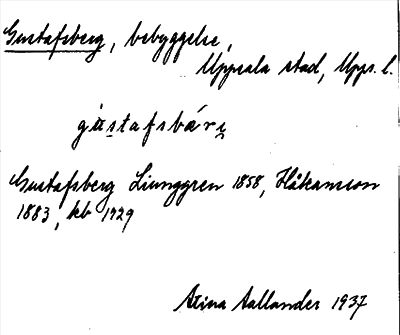 Gustafsberg, bebyggelse,
Uppsala stad, Upps. l.
gustafsbärj
Gustafsberg Liunggren 1858, Håkansson
1883, kb 1929
Stina Aallander 1937